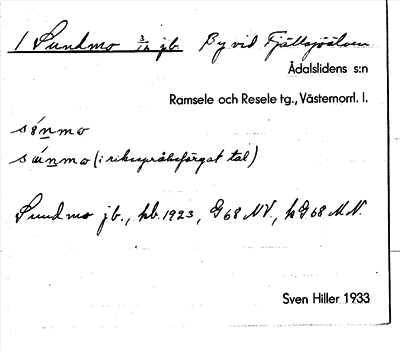 1 Sundmo 3/16 jb. By vid Fjällsjöälven
Ådalslidens s:n
Ramsele och Resele tg., Västernorrl. l.
sönmo
(i riksspråksfärgat tal)
Sundmo jb., kb. 1923, G 68 NV., k G 68 M.N.
Sven Hiller 1933